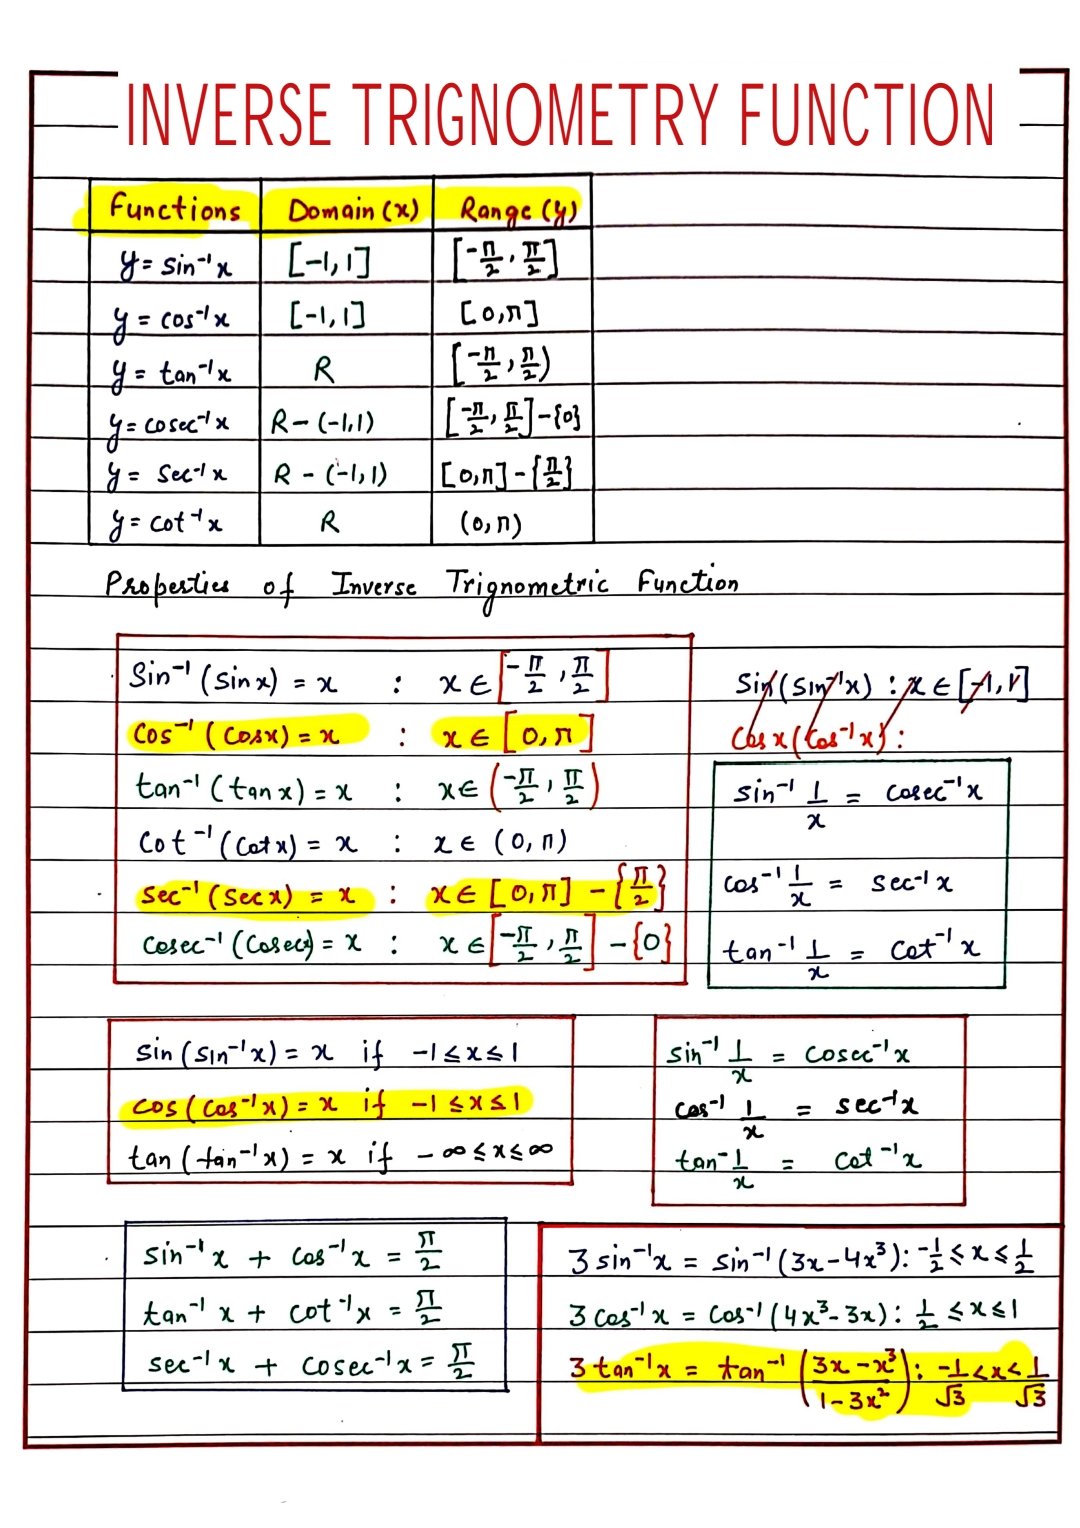 INVERSE TRIGNOMETRY FUNCTION
Functions Domain (x) Range (y)
y = sin⁻¹x [-1,1] [-π/2, π/2]
y = cos⁻¹x [-1,1] [0,π]
y = tan⁻¹x R [-π/2, π/2)
y = cosec⁻¹x R-(-1,1) [-π/2, π/2]-{0}
y = sec⁻¹x R-(-1,1) [0,π]-{π/2}
y = cot⁻¹x R (0,π)
Properties of Inverse Trignometric Function
Sin⁻¹(sinx) = x : x∈[-π/2, π/2]
cos⁻¹(cosx) = x : x∈[0,π]
tan⁻¹(tanx) = x : x∈(-π/2, π/2)
Cot⁻¹(cotx) = x : x∈(0,π)
sec⁻¹(secx) = x : x∈[0,π]-{π/2}
Cosec⁻¹(Cosecx) = x : x∈[-π/2, π/2]-{0}
Sin(sin⁻¹x) : x∈[-1,1]
Cosx(cos⁻¹x) :
sin⁻¹ 1/x = cosec⁻¹x
cos⁻¹ 1/x = sec⁻¹x
tan⁻¹ 1/x = cot⁻¹x
sin(sin⁻¹x) = x if -1≤x≤1
cos(cos⁻¹x) = x if -1≤x≤1
tan(tan⁻¹x) = x if -∞≤x≤∞
sin⁻¹ 1/x = cosec⁻¹x
cos⁻¹ 1/x = sec⁻¹x
tan⁻¹ 1/x = cot⁻¹x
sin⁻¹x + cos⁻¹x = π/2
tan⁻¹x + cot⁻¹x = π/2
sec⁻¹x + cosec⁻¹x = π/2
3 sin⁻¹x = sin⁻¹(3x-4x³): -1/2≤x≤1/2
3 cos⁻¹x = cos⁻¹(4x³-3x): 1/2≤x≤1
3 tan⁻¹x = tan⁻¹((3x-x³)/(1-3x²)): -1/√3<x<1/√3